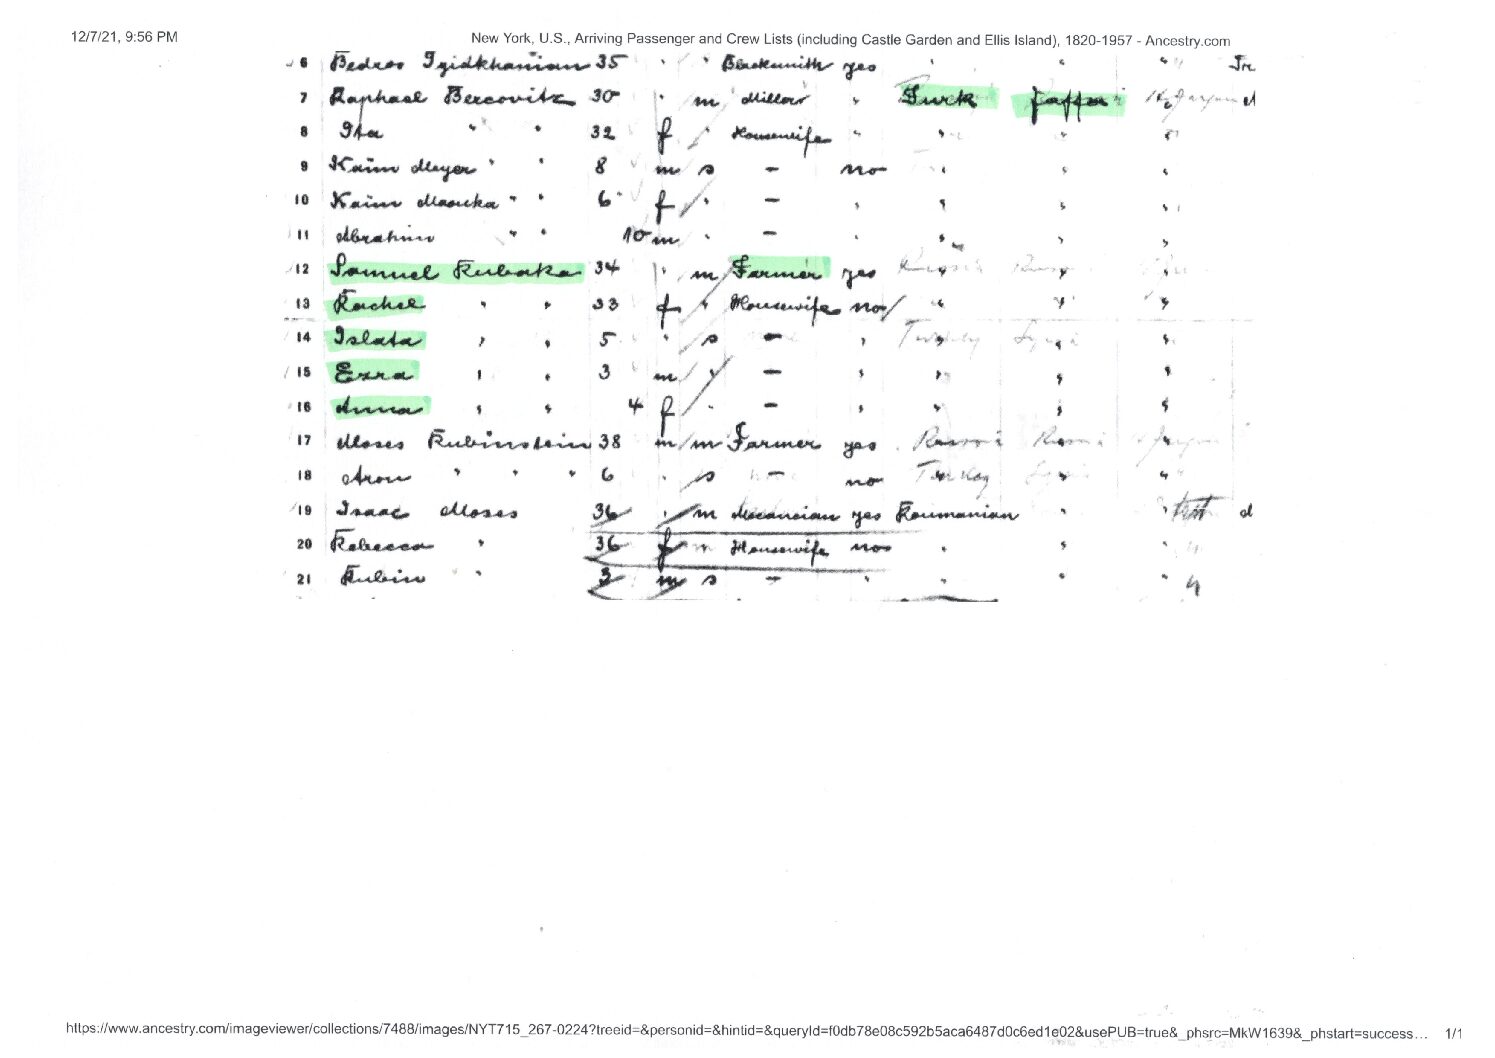 12/7/21, 9:56 PM New York, U.S., Arriving Passenger and Crew Lists (including Castle Garden and Ellis Island), 1820-1957 - Ancestry.com
6 Bedros 35 " Blacksmith yes " " "
7 Raphael Bercovitz 30 " m Millor " Turk Jaffa
8 Ita " " 32 f " Housewife " " " "
9 Kaim Meyer " " 8 m s - no " " "
10 Kaim " " 6 f " - " " " "
11 Abrahim " " 10 m " - " " " "
12 Samuel Rubaka 34 " m Farmer yes
13 Rachel " " 33 f " Housewife no " " "
14 Islata " " 5 " s - " Turkey "
15 Esra " " 3 m " - " " " "
16 Anna " " 4 f " - " " " "
17 Moses Rubinstein 38 m m Farmer yes
18 Aron " " " 6 " s - no Turkey "
19 Isaac Moses 36 " m yes Roumanian " "
20 Rebecca " 36 f m Housewife no " " "
21 Rubin " 3 m s - " " " " 4
https://www.ancestry.com/imageviewer/collections/7488/images/NYT715_267-0224?treeid=&personid=&hintid=&queryId=f0db78e08c592b5aca6487d0c6ed1e02&usePUB=true&_phsrc=MkW1639&_phstart=success... 1/1